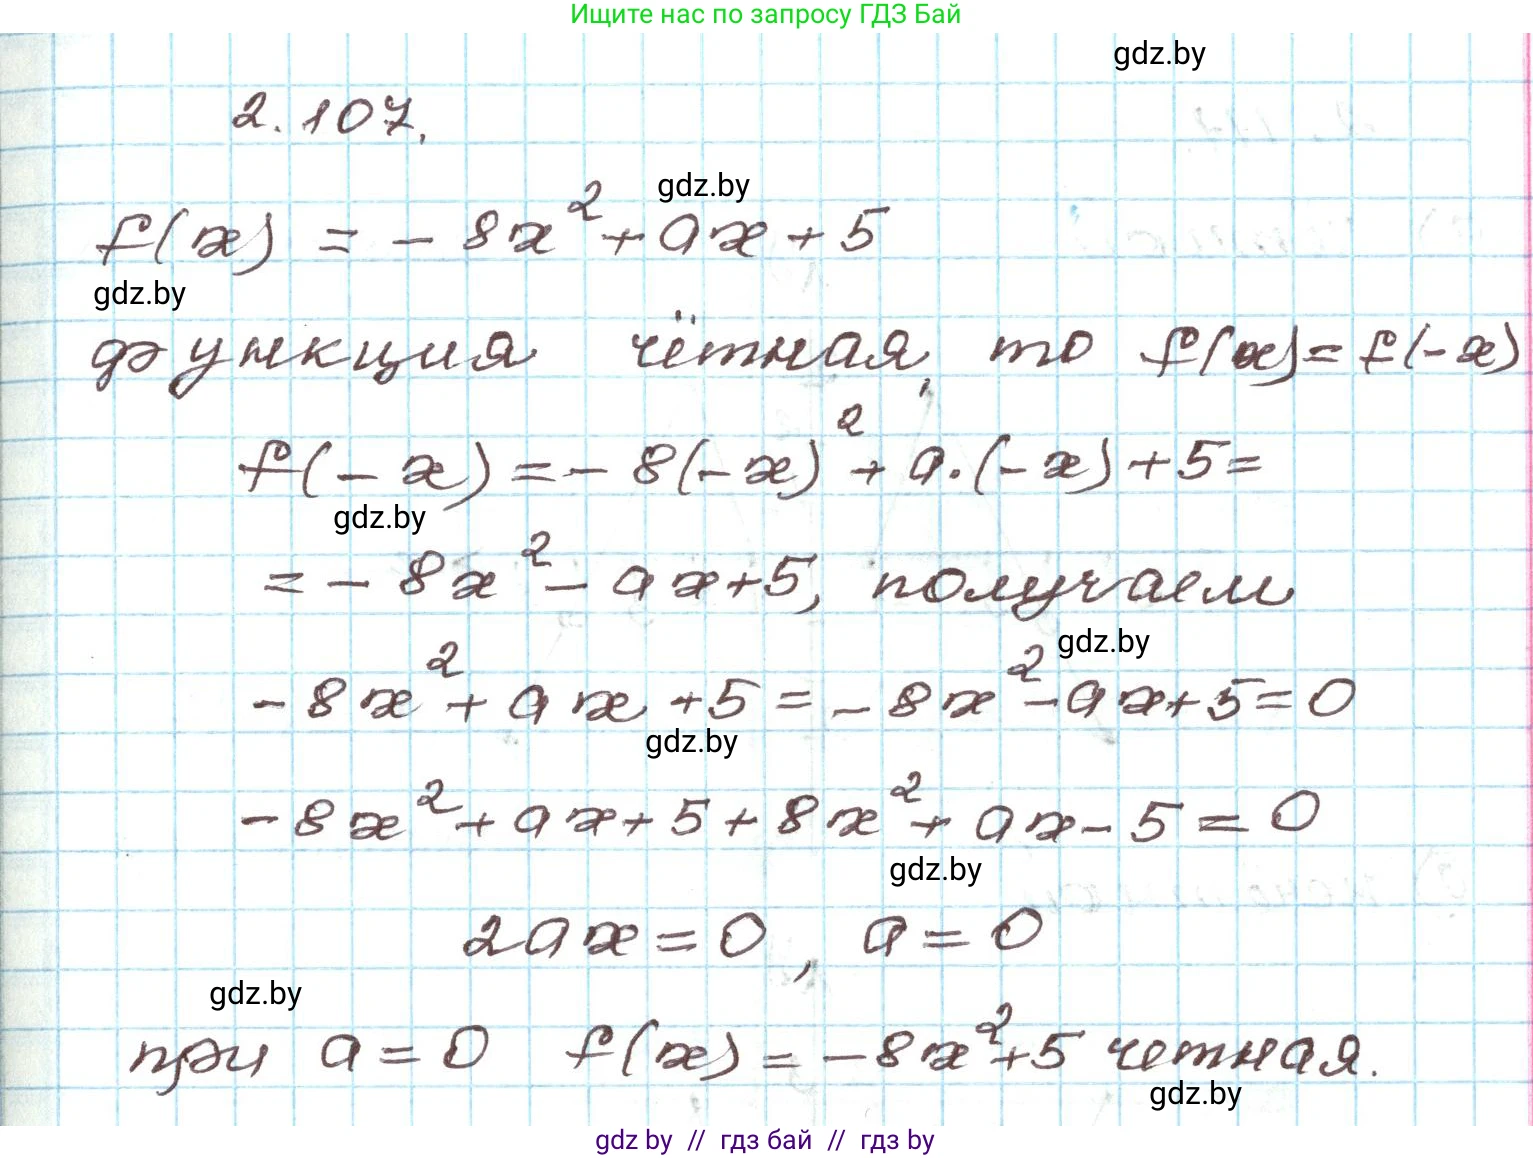 Ищите нас по запросу ГДЗ Бай
gdz.by
2.107.
gdz.by
f(x) = - 8x² + ax + 5
gdz.by
функция чётная, то f(x) = f(-x)
f(-x) = - 8(-x)² + a·(-x) + 5 =
gdz.by
= - 8x² - ax + 5, получаем
gdz.by
-8x² + ax + 5 = -8x² - ax + 5 = 0
gdz.by
-8x² + ax + 5 + 8x² + ax - 5 = 0
gdz.by
2ax = 0, a = 0
gdz.by
при a = 0 f(x) = -8x² + 5 четная.
gdz.by
gdz by // гдз бай // гдз by